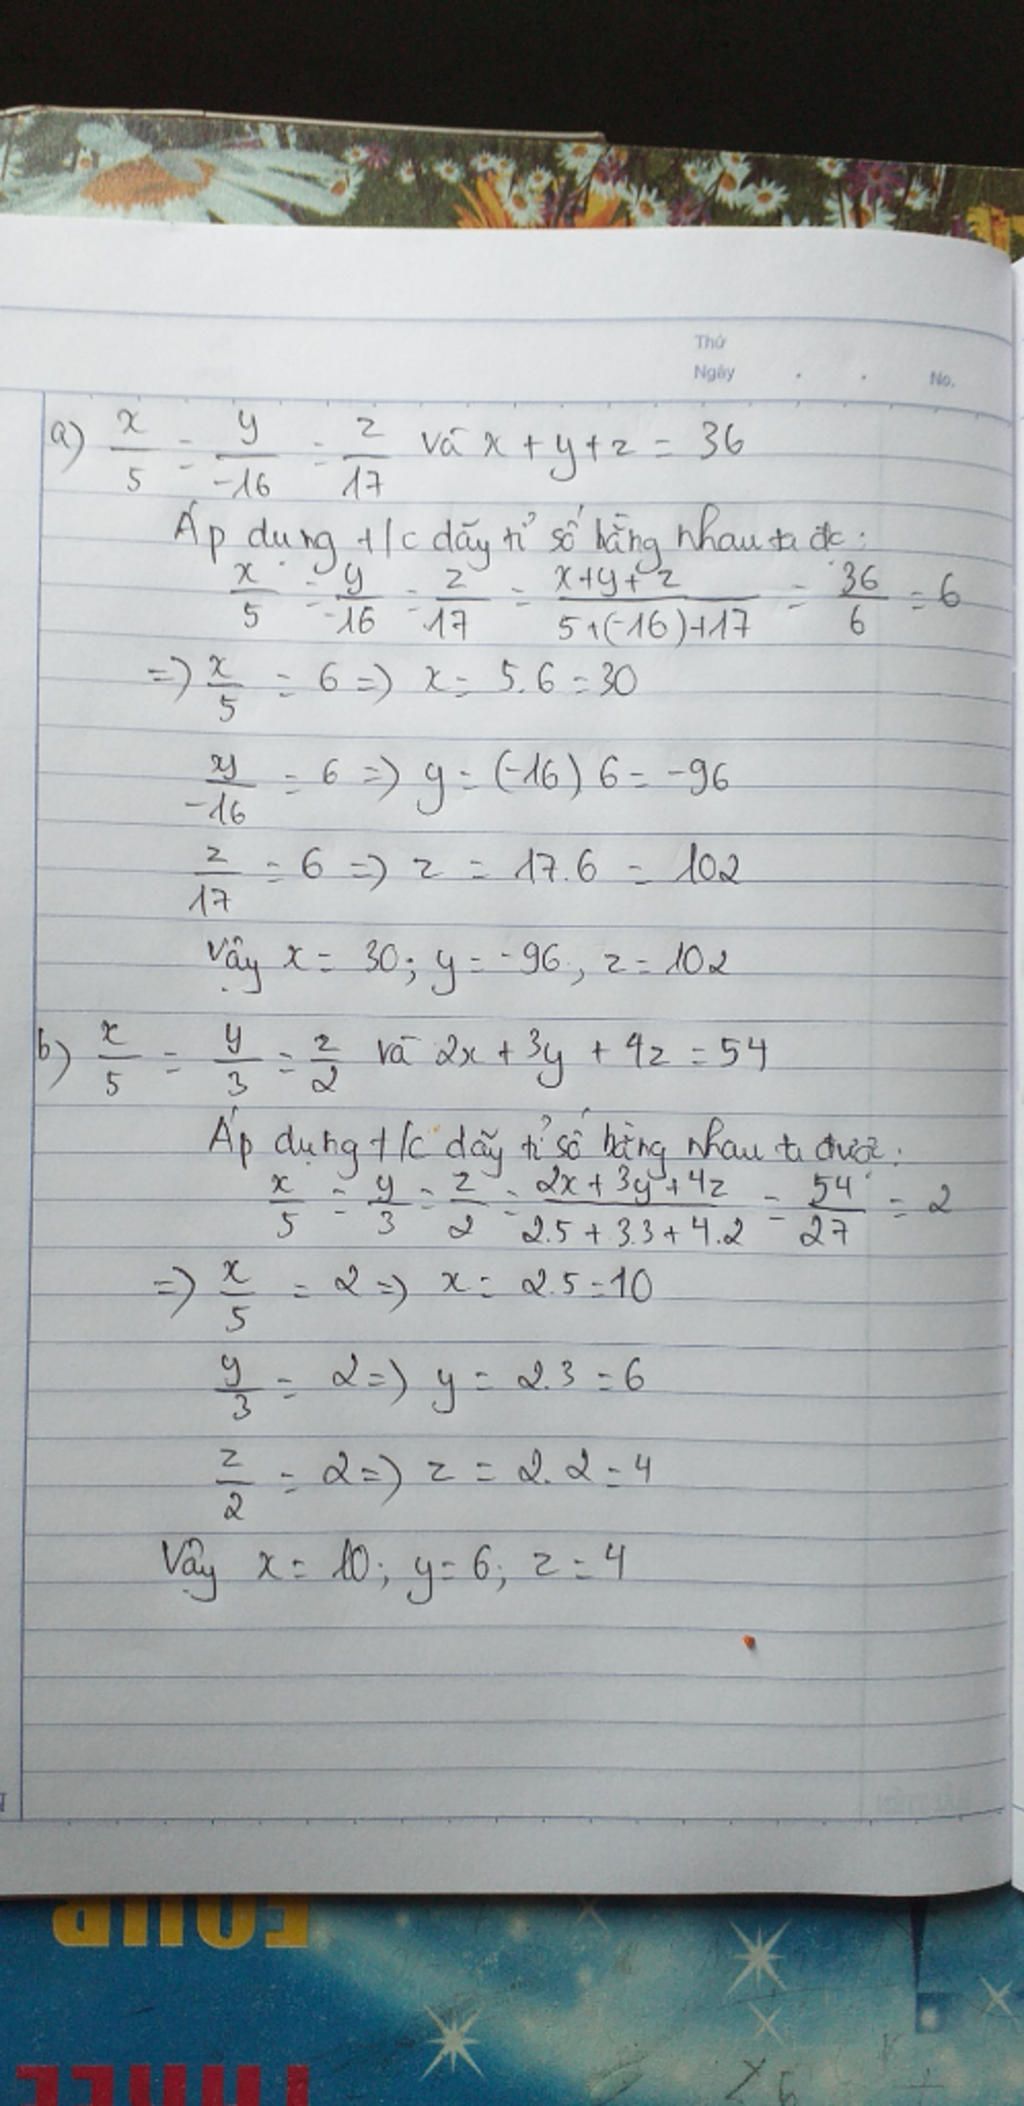 Thứ
Ngày . . No.
a) x/5 = y/-16 = z/17 và x + y + z = 36
Áp dung t/c dãy tỉ số bằng nhau ta đc:
x/5 = y/-16 = z/17 = x+y+z/5+(-16)+17 = 36/6 = 6
=> x/5 = 6 => x = 5.6 = 30
y/-16 = 6 => y = (-16) 6 = -96
z/17 = 6 => z = 17.6 = 102
Vậy x = 30; y = -96, z = 102
b) x/5 = y/3 = z/2 và 2x + 3y + 4z = 54
Áp dụng t/c dãy tỉ số bằng nhau ta được:
x/5 = y/3 = z/2 = 2x+3y+4z/2.5+3.3+4.2 = 54/27 = 2
=> x/5 = 2 => x = 2.5 = 10
y/3 = 2 => y = 2.3 = 6
z/2 = 2 => z = 2.2 = 4
Vậy x = 10; y = 6; z = 4